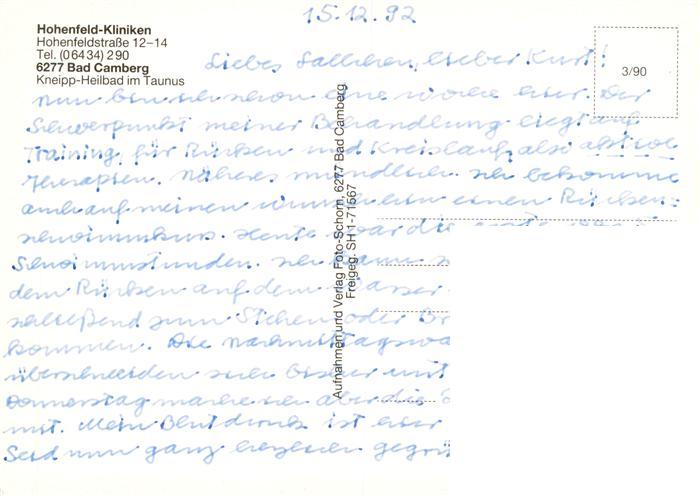 15.12.92
Hohenfeld-Kliniken
Hohenfeldstraße 12–14
Tel. (06434) 290
6277 Bad Camberg
Kneipp-Heilbad im Taunus
3/90
Liebes Sallchen, lieber Kurt!
nun bin ich schon eine Woche hier. Der
Schwerpunkt meiner Behandlung liegt auf
Training für Rücken und Kreislauf, also aktive
Therapien. Näheres mündlich. Ich bekomme
auch auf meinen Wunsch hin einen Rücken-
schwimmkurs. Heute war die erste
Schwimmstunden. Ich kann
dem Rücken auf dem Wasser
schließend zum Stehen oder
kommen. Die Nachmittags
überschneiden sich bisher mit
Donnerstag mache ich aber die
mit. Mein Blutdruck ist hier
Seid nun ganz herzlich gegrü
Aufnahmen und Verlag Foto-Schorn, 6277 Bad Camberg
Freigeg. SH 1-71567